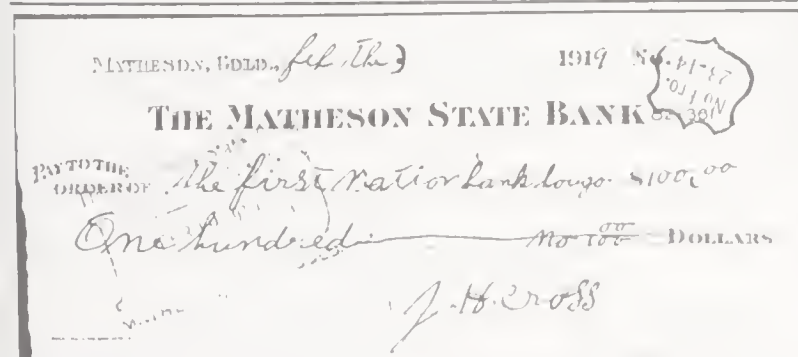 MATHESON, COLO., feb the 3 1919 No.
THE MATHESON STATE BANK
PAY TO THE
ORDER OF the first nation bank $100.00
One hundred no 00/100 DOLLARS
J. H. Cross